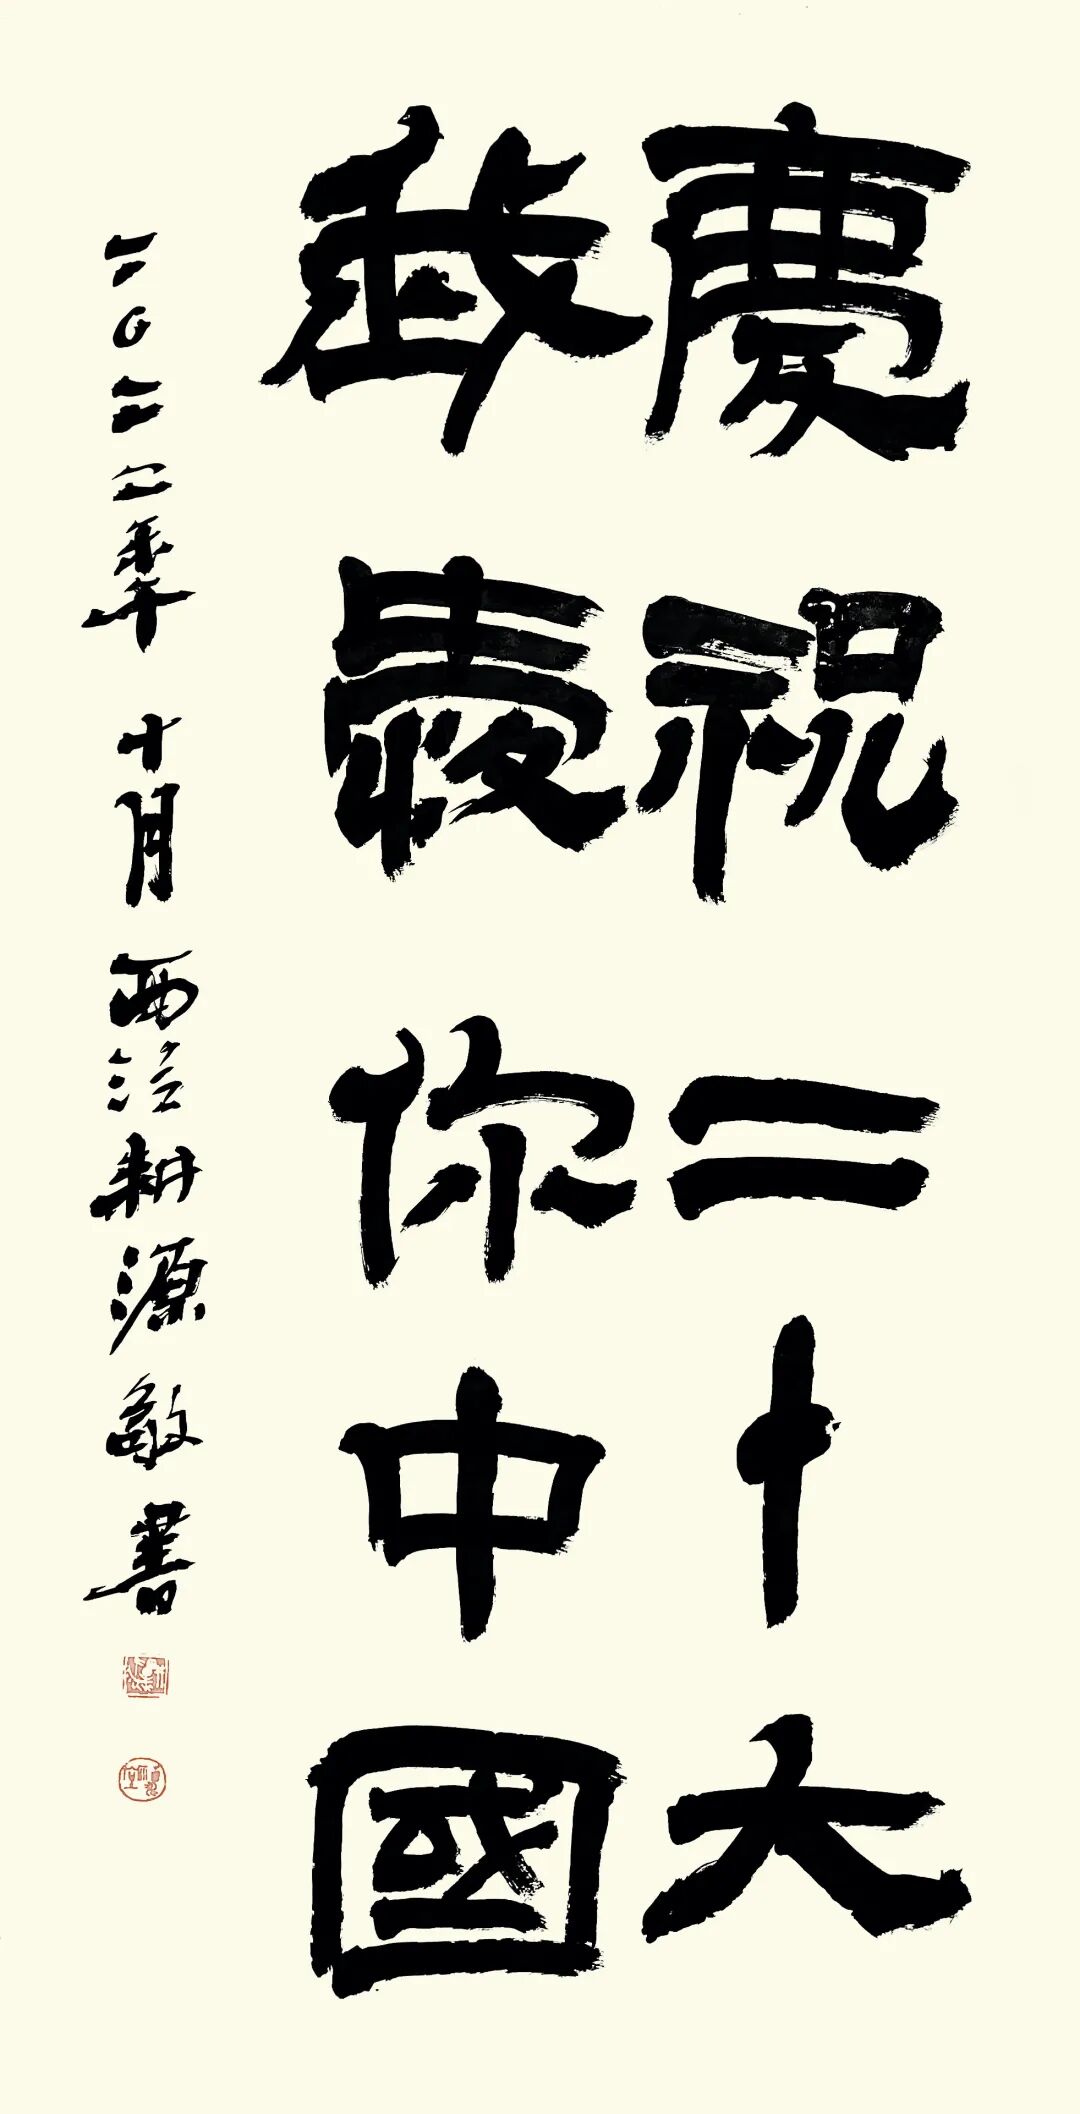 慶祝二十大
我愛你中國
二〇二二年十月西泠耕源敬書